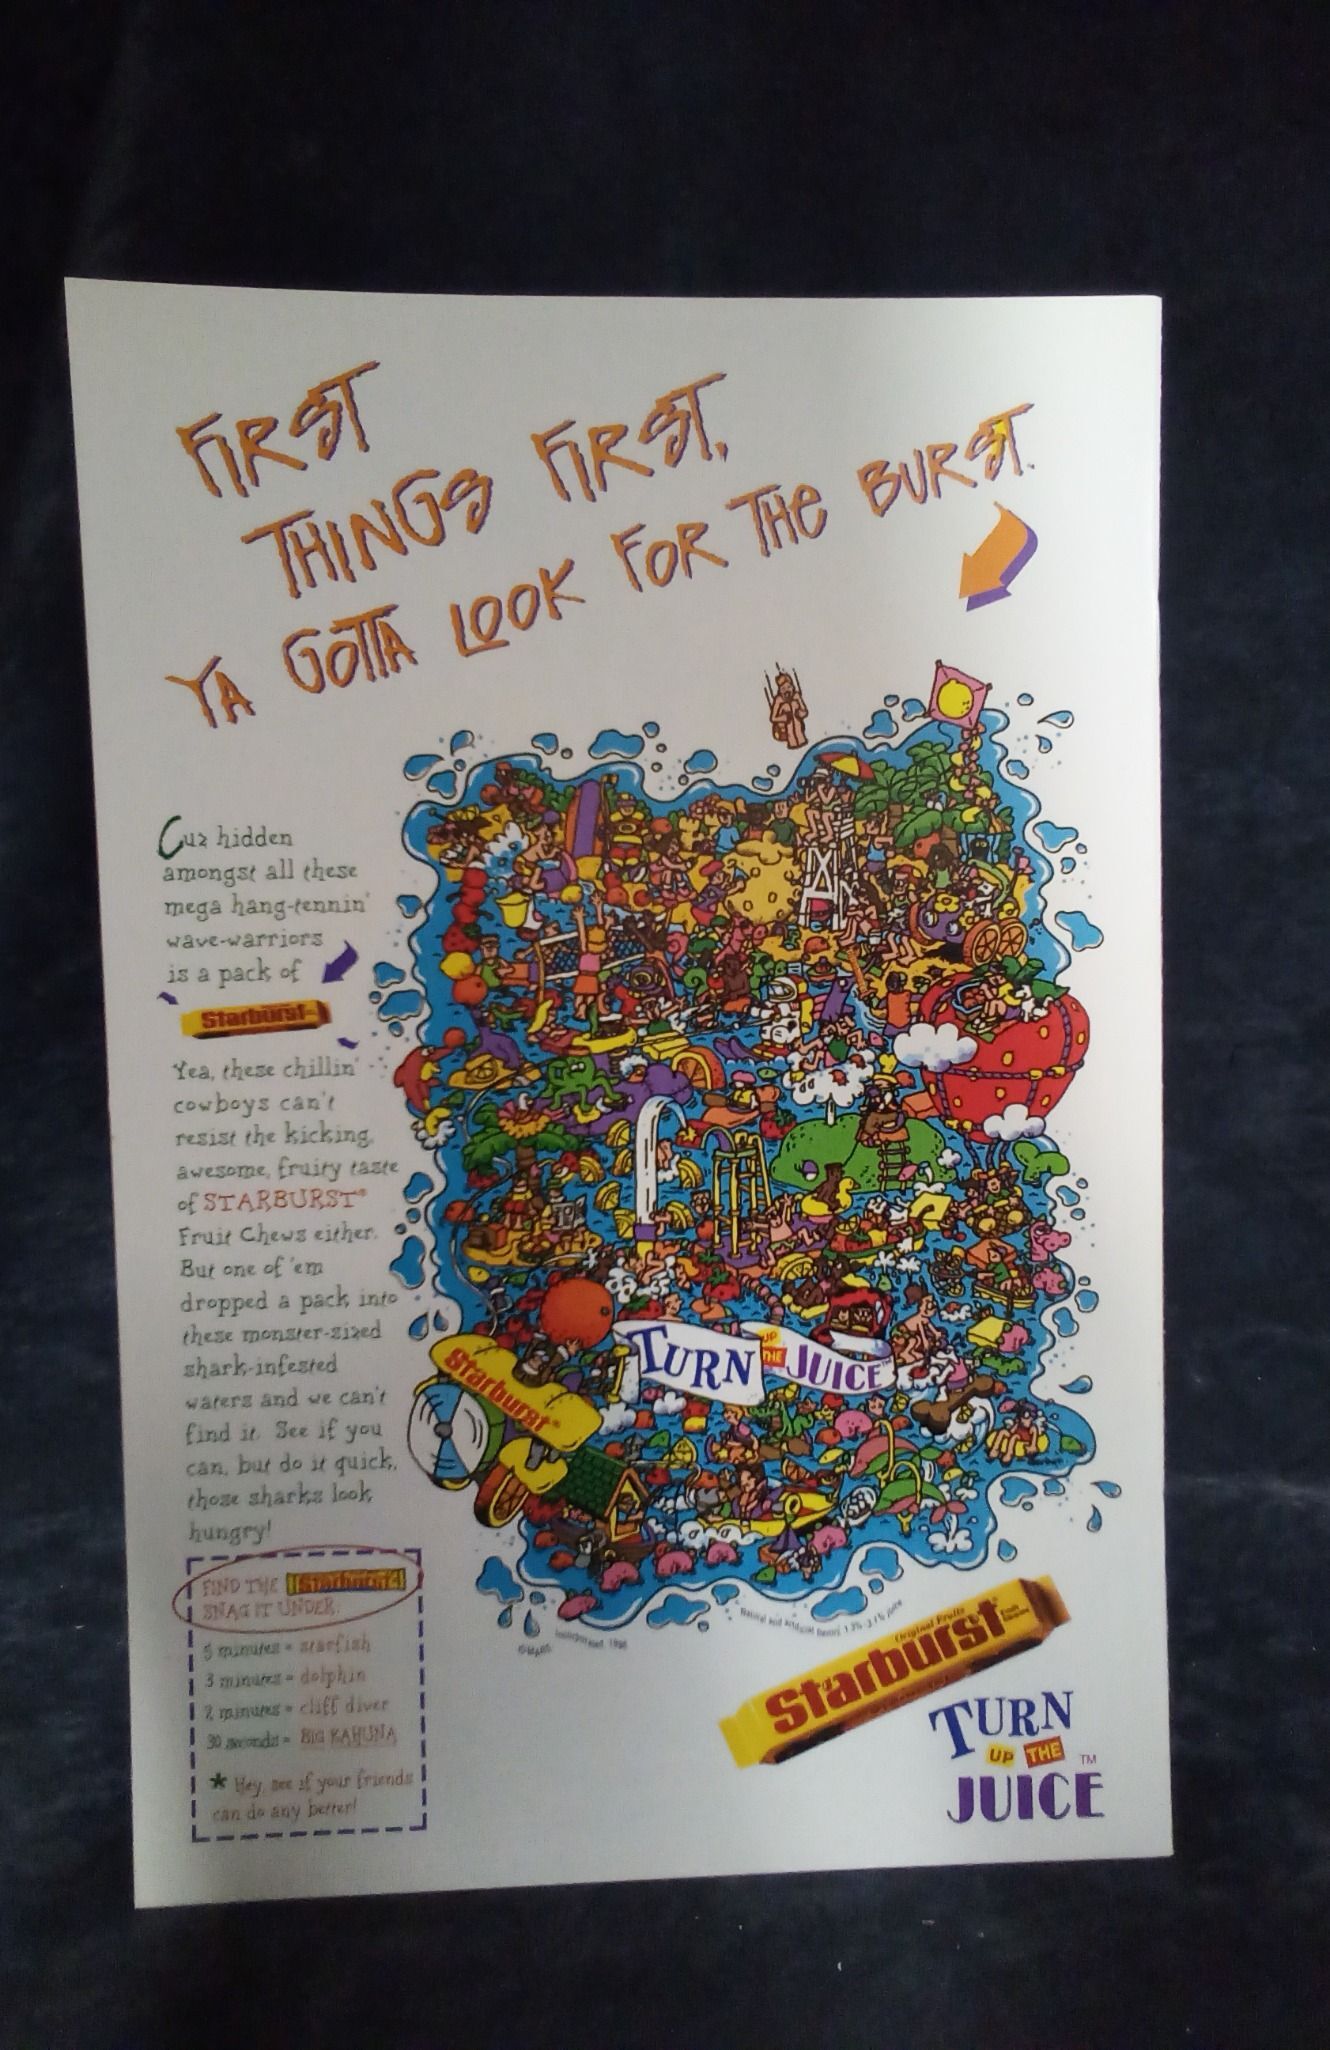 FIRST
THINGS FIRST,
YA GOTTA LOOK FOR THE BURST.
Cuz hidden
amongst all these
mega hang-tennin'
wave-warriors
is a pack of
Starburst
Yea, these chillin'
cowboys can't
resist the kicking,
awesome, fruity taste
of STARBURST®
Fruit Chews either.
But one of 'em
dropped a pack into
these monster-sized
shark-infested
waters and we can't
find it. See if you
can, but do it quick,
those sharks look
hungry!
FIND THE Starburst
SNAG IT UNDER:
5 minutes = starfish
3 minutes = dolphin
2 minutes = cliff diver
30 seconds = BIG KAHUNA
* Hey, see if your friends
can do any better!
TURN UP THE JUICE™
Starburst®
©MARS, Incorporated, 1996
Natural and artificial flavors
Original Fruits
Starburst
TURN
UP THE
JUICE™